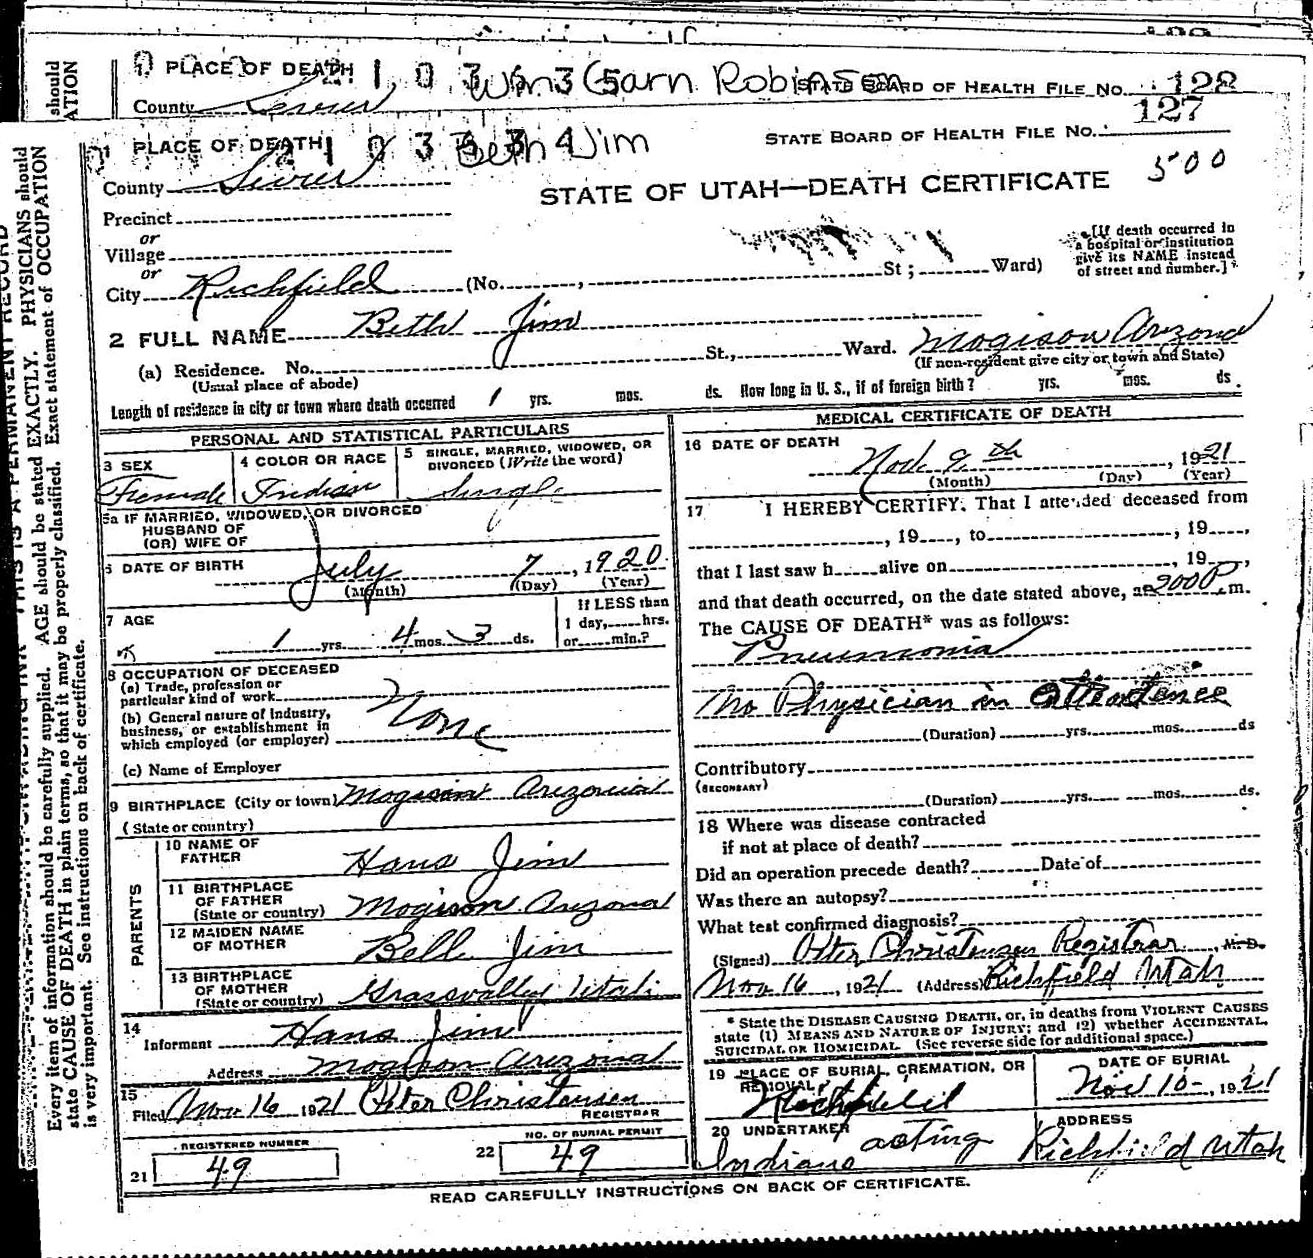 1 PLACE OF DEATH
Wm Garn Robinson
STATE BOARD OF HEALTH FILE NO. 128
County Sevier
127
1 PLACE OF DEATH
Beth Jim
STATE BOARD OF HEALTH FILE No.
County Sevier
STATE OF UTAH—DEATH CERTIFICATE
500
Precinct
or
Village
or
City Richfield (No. , St ; Ward)
[If death occurred in
a hospital or institution
give its NAME instead
of street and number.]
2 FULL NAME Beth Jim
(a) Residence. No. St., Ward. Mogison Arizona
(Usual place of abode)
(If non-resident give city or town and State)
Length of residence in city or town where death occurred 1 yrs. mos. ds. How long in U. S., if of foreign birth? yrs. mos. ds.
PERSONAL AND STATISTICAL PARTICULARS
3 SEX
Female
4 COLOR OR RACE
Indian
5 SINGLE, MARRIED, WIDOWED, OR
DIVORCED (Write the word)
Single
5a IF MARRIED, WIDOWED, OR DIVORCED
HUSBAND OF
(OR) WIFE OF
6 DATE OF BIRTH
July 7, 1920
(Month) (Day) (Year)
7 AGE
1 yrs. 4 mos. 3 ds.
If LESS than
1 day, hrs.
or min.?
8 OCCUPATION OF DECEASED
(a) Trade, profession or
particular kind of work
None
(b) General nature of Industry,
business, or establishment in
which employed (or employer)
(c) Name of Employer
9 BIRTHPLACE (City or town) Mogison Arizona
(State or country)
PARENTS
10 NAME OF
FATHER
Hans Jim
11 BIRTHPLACE
OF FATHER
(State or country)
Mogison Arizona
12 MAIDEN NAME
OF MOTHER
Bell Jim
13 BIRTHPLACE
OF MOTHER
(State or country)
Grassvalley Utah
14
Informent Hans Jim
Address Mogison Arizona
15
Filed Nov 16 1921 Peter Christensen
REGISTRAR
REGISTERED NUMBER
21 49
NO. OF BURIAL PERMIT
22 49
MEDICAL CERTIFICATE OF DEATH
16 DATE OF DEATH
Nov. 9th, 1921
(Month) (Day) (Year)
17 I HEREBY CERTIFY, That I attended deceased from
, 19 , to , 19 ,
that I last saw h alive on , 19 ,
and that death occurred, on the date stated above, at 200 P m.
The CAUSE OF DEATH* was as follows:
Pneumonia
No Physician in attendence
(Duration) yrs. mos. ds
Contributory
(SECONDARY)
(Duration) yrs. mos. ds.
18 Where was disease contracted
if not at place of death?
Did an operation precede death? Date of
Was there an autopsy?
What test confirmed diagnosis?
(Signed) Peter Christensen Registrar, M. D.
Nov 16, 1921 (Address) Richfield Utah
* State the DISEASE CAUSING DEATH, or, in deaths from VIOLENT CAUSES
state (1) MEANS AND NATURE OF INJURY; and (2) whether ACCIDENTAL,
SUICIDAL OR HOMICIDAL. (See reverse side for additional space.)
19 PLACE OF BURIAL, CREMATION, OR
REMOVAL
Richfield
DATE OF BURIAL
Nov 10 -, 1921
20 UNDERTAKER
Indians acting
ADDRESS
Richfield Utah
READ CAREFULLY INSTRUCTIONS ON BACK OF CERTIFICATE.
Every item of information should be carefully supplied. AGE should be stated EXACTLY. PHYSICIANS should
state CAUSE OF DEATH in plain terms, so that it may be properly classified. Exact statement of OCCUPATION
is very important. See instructions on back of certificate.